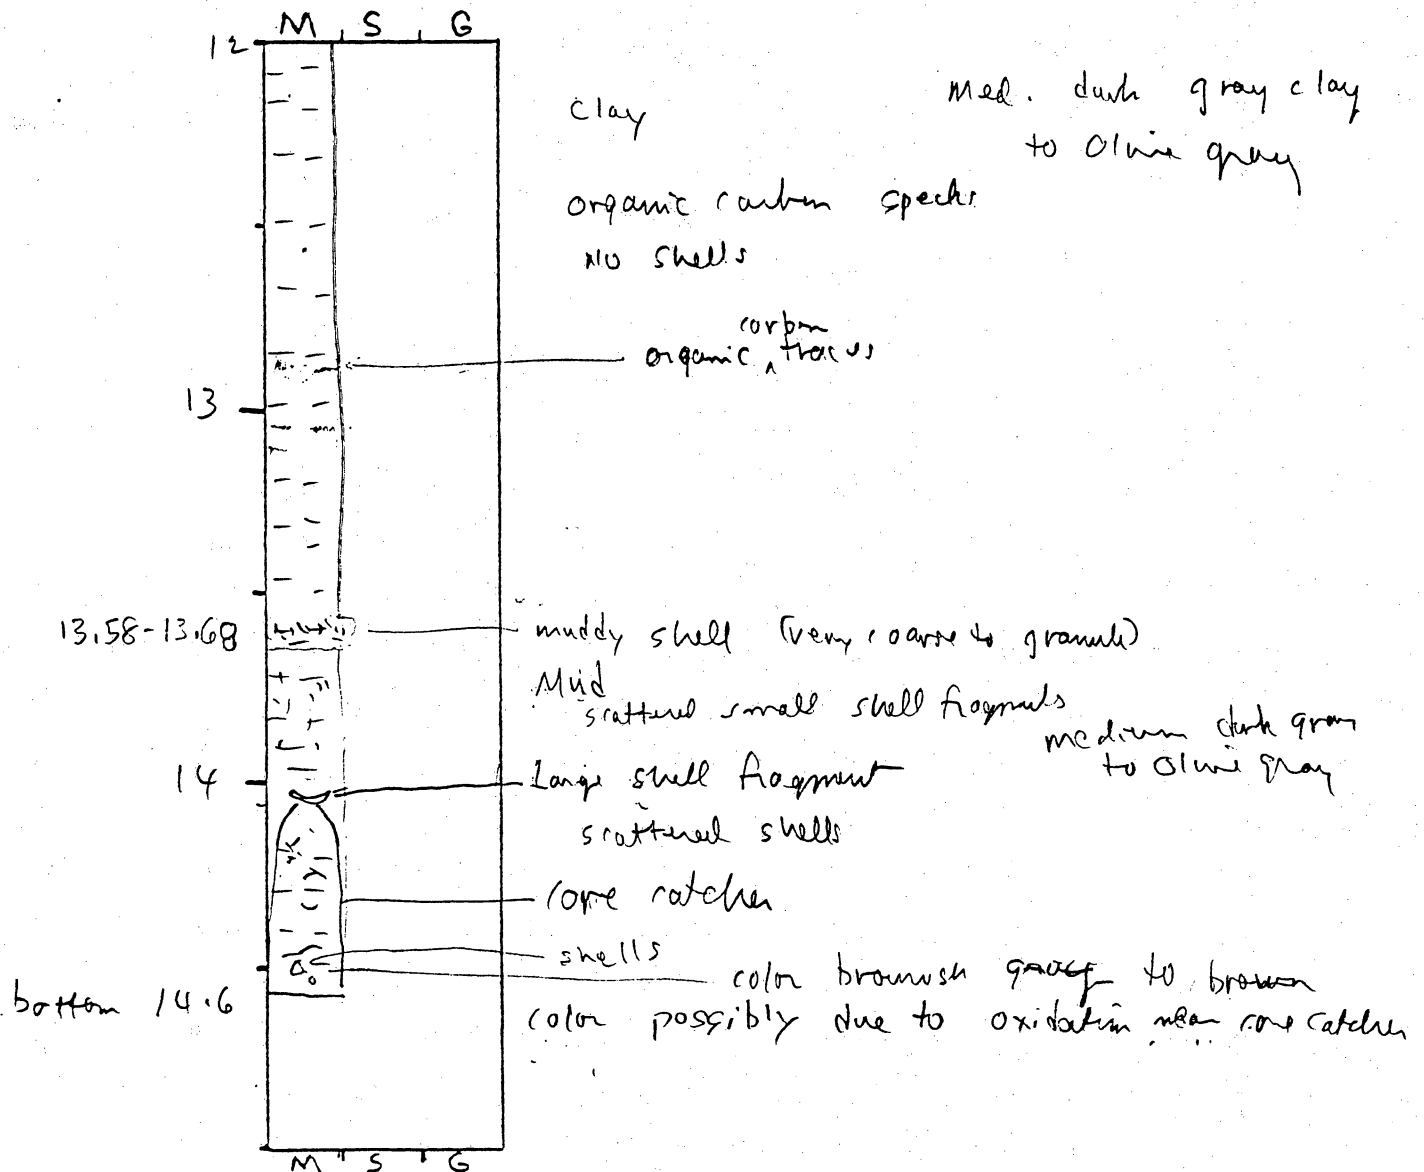 M S G
12
Clay
Med. dark gray clay
to Olive gray
organic carbon specks
No shells
carbon
organic ^ traces
13
13.58-13.68
muddy shell (very coarse to granule)
Mud
scattered small shell fragments
medium dark gray
to Olive gray
14
Large shell fragment
scattered shells
core catcher
shells
color brownish gray to brown
bottom 14.6
color possibly due to oxidation near core catcher
M S G